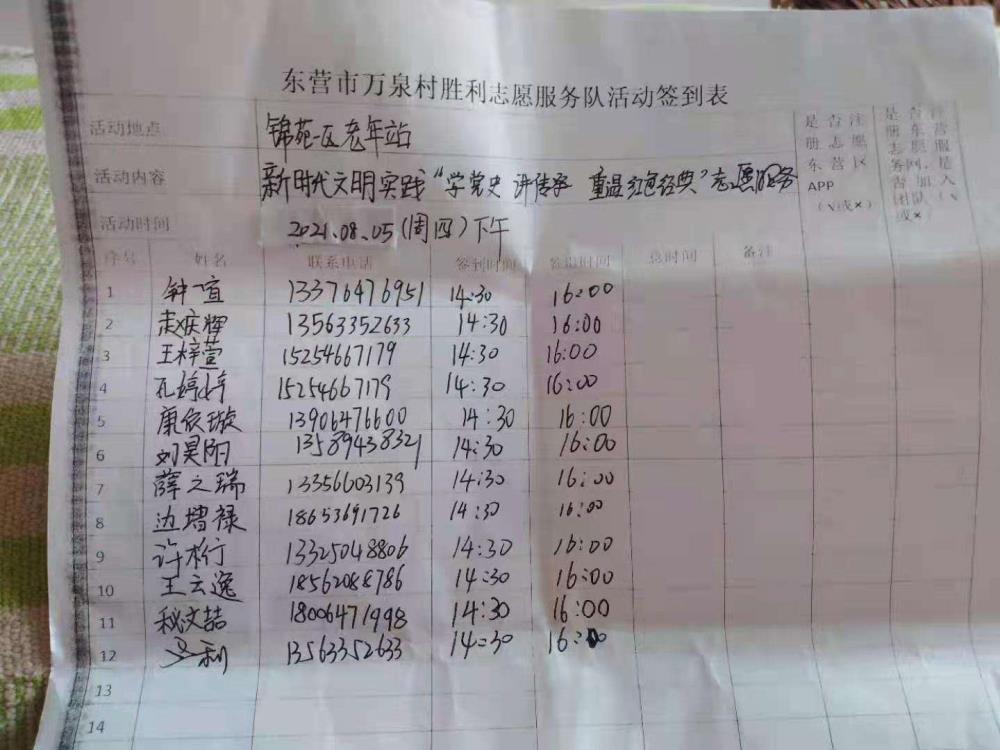 东营市万泉村胜利志愿服务队活动签到表
活动地点 锦苑一区老年站
活动内容 新时代文明实践“学党史 讲传承 重温红色经典”志愿服务
活动时间 2021.08.05(周四)下午
是否注册志愿东营区APP(√或×)
是否注册东营志愿服务网,是否加入团队(√或×)
序号 姓名 联系电话 签到时间 签退时间 总时间 备注
1 钟一宣 13376476951 14:30 16:00
2 赵庆辉 13563352633 14:30 16:00
3 王梓萱 15254667179 14:30 16:00
4 孔婷婷 15254667179 14:30 16:00
5 康依璇 13906476600 14:30 16:00
6 刘昊阳 13589438321 14:30 16:00
7 薛之瑞 13356603139 14:30 16:00
8 边增禄 18653691726 14:30 16:00
9 许桁 13325048806 14:30 16:00
10 王云逸 14:30 16:00
11 秘文喆 18006471998 14:30 16:00
12 13563352633 14:30 16:00
13
14